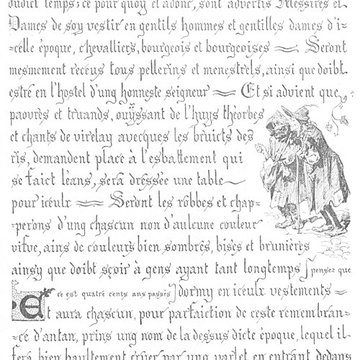 dudict temps; ce pour quoy et adonc, sont advertis Messires et
Dames de soy vestir en gentils hommes et gentilles dames d'i-
celle époque, chevalliers, bourgeois et bourgeoises Seront
mesmement receus tous pellerins et menestrels, ainsi que doibt
estre en l'hostel d'ung honneste seigneur Et si advient que,
paovres et truands, ouyssant de l'huys théorbes
et chants de virelay avecques les bruicts des
ris, demandent place à l'esbattement qui
se faict léans, sera dressée une table
pour iceulx Seront les robbes et chap-
perons d'ung chascun non d'aulcune couleur
vifve, ains de couleurs bien sombres, bises et brunières
ainsy que doibt seoir à gens ayant tant longtemps [pensez que
ce est quatre cents ans passés] dormy en iceulx vestements
Et aura chascun, pour parfaiction de ceste remembran-
ce d'antan, prins ung nom de la dessus dicte époque, lequel il
fera bien haultement crier par ung varlet en entrant dedans